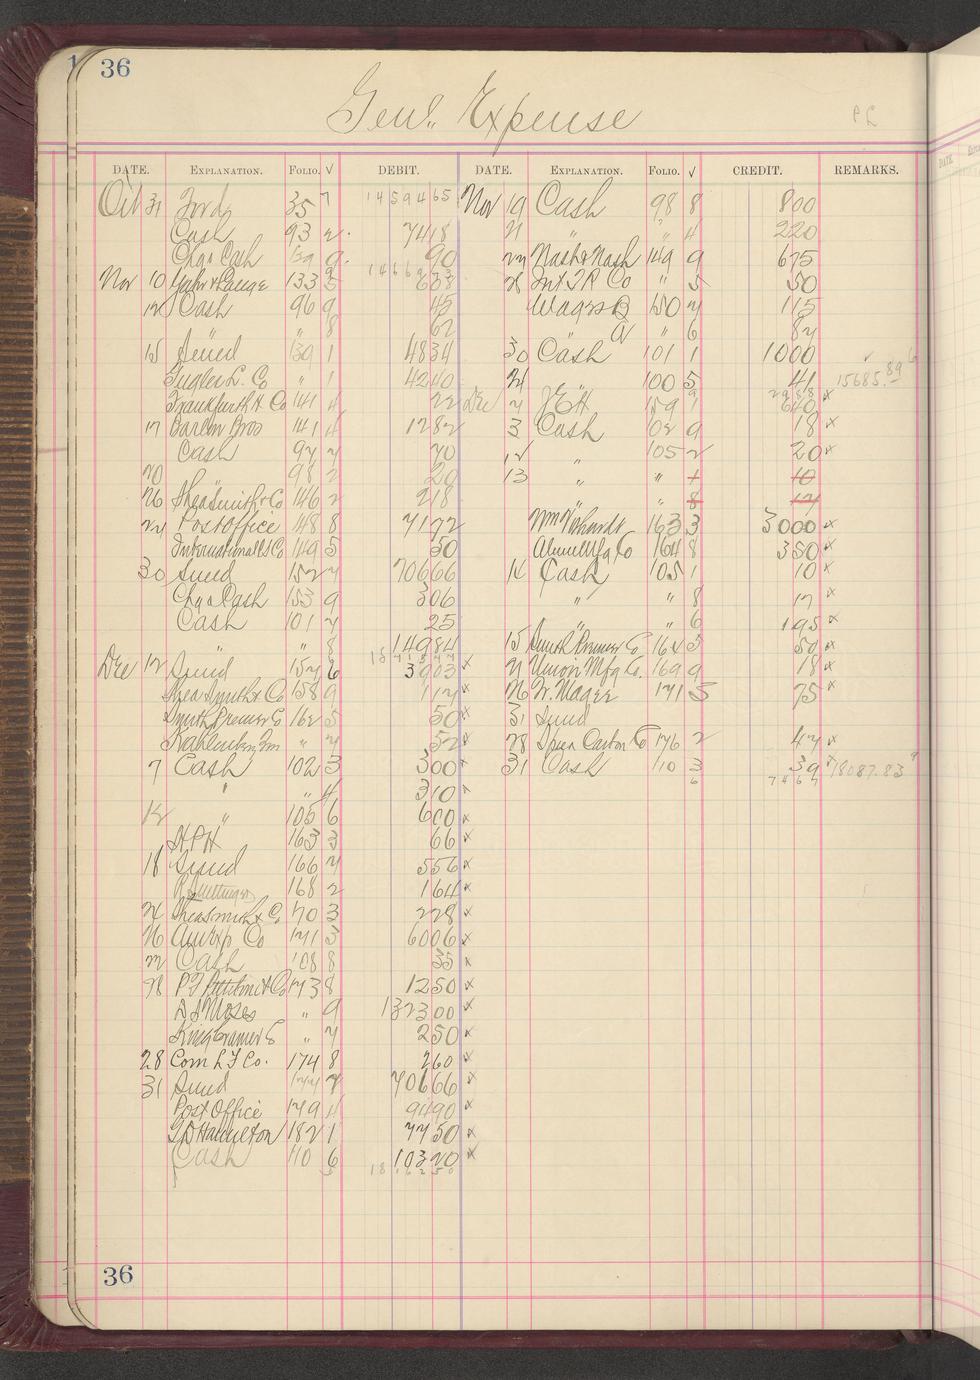 36
Genl. Expense
P L
DATE. EXPLANATION. FOLIO. √ DEBIT. DATE. EXPLANATION. FOLIO. √ CREDIT. REMARKS.
Oct 31 Ford 35 1459465
Cash 93 2 7418
Chgo Cash 139 9 90
Nov 10 133 5 638
12 Cash 96 9 45
" 8 62
15 Sund 139 1 4834
" 1 4240
Frankfurth H Co 141 4 22
17 Barlin Bros 141 4 1282
Cash 97 7 70
20 98 2 20
26 Shea Smith & Co 146 2 218
27 Post Office 148 8 7172
International Co 149 5 50
30 Sund 152 7 70666
Chgo Cash 153 9 306
Cash 101 7 25
" 8 14984
Dec 12 Sund 157 6 3903 x
Shea Smith & Co 158 9 117 x
Smith Premier Co 162 5 50 x
" 7 52 x
7 Cash 102 3 300 x
" " 4 310 x
12 " 105 6 600 x
H P H 163 3 66 x
18 Sund 166 7 556 x
168 2 164 x
24 Shea Smith & Co 170 3 228 x
26 Am Exp Co 171 3 6006 x
27 Cash 108 8 35 x
28 173 8 1250 x
A S Moses " 9 132300 x
King Cramer Co " 7 250 x
28 Com L F Co. 174 8 260 x
31 Sund 177 7 70666 x
Post Office 179 4 9490 x
Hamilton 182 1 7750 x
Cash 110 6 10320 x
Nov 19 Cash 98 8 800
21 " " 4 220
22 Nash & Nash 149 9 675
28 Int T R Co " 5 50
Wages B 150 7 115
" A " 6 87
30 Cash 101 1 1000
100 5 41 15685.89
Dec 2 J E H 159 1 640 x
3 Cash 102 9 18 x
12 " 105 2 20 x
13 " " 1 10
" " 8 17
163 3 3000 x
Mfg Co 164 8 350 x
14 Cash 105 1 10 x
" " 8 17 x
" 6 195 x
15 Smith Premier Co 164 5 50 x
21 Union Mfg Co. 169 9 18 x
26 W. Mager 171 5 75 x
31 Sund
28 Carbon Co 176 2 47 x
31 Cash 110 3 39 x 18087.83
36